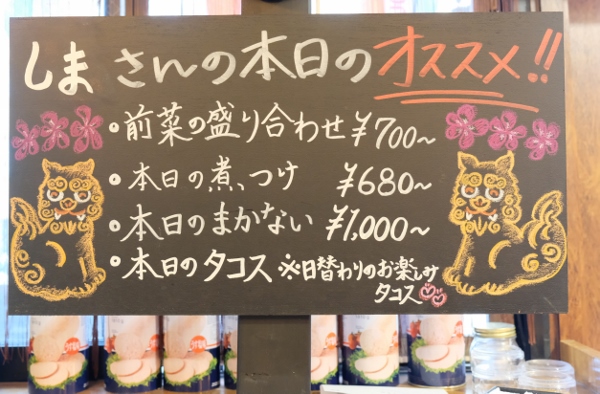 しまさんの本日のオススメ!!
・前菜の盛り合わせ ¥700~
・本日の煮つけ ¥680~
・本日のまかない ¥1,000~
・本日のタコス ※日替わりのお楽しみ
タコス